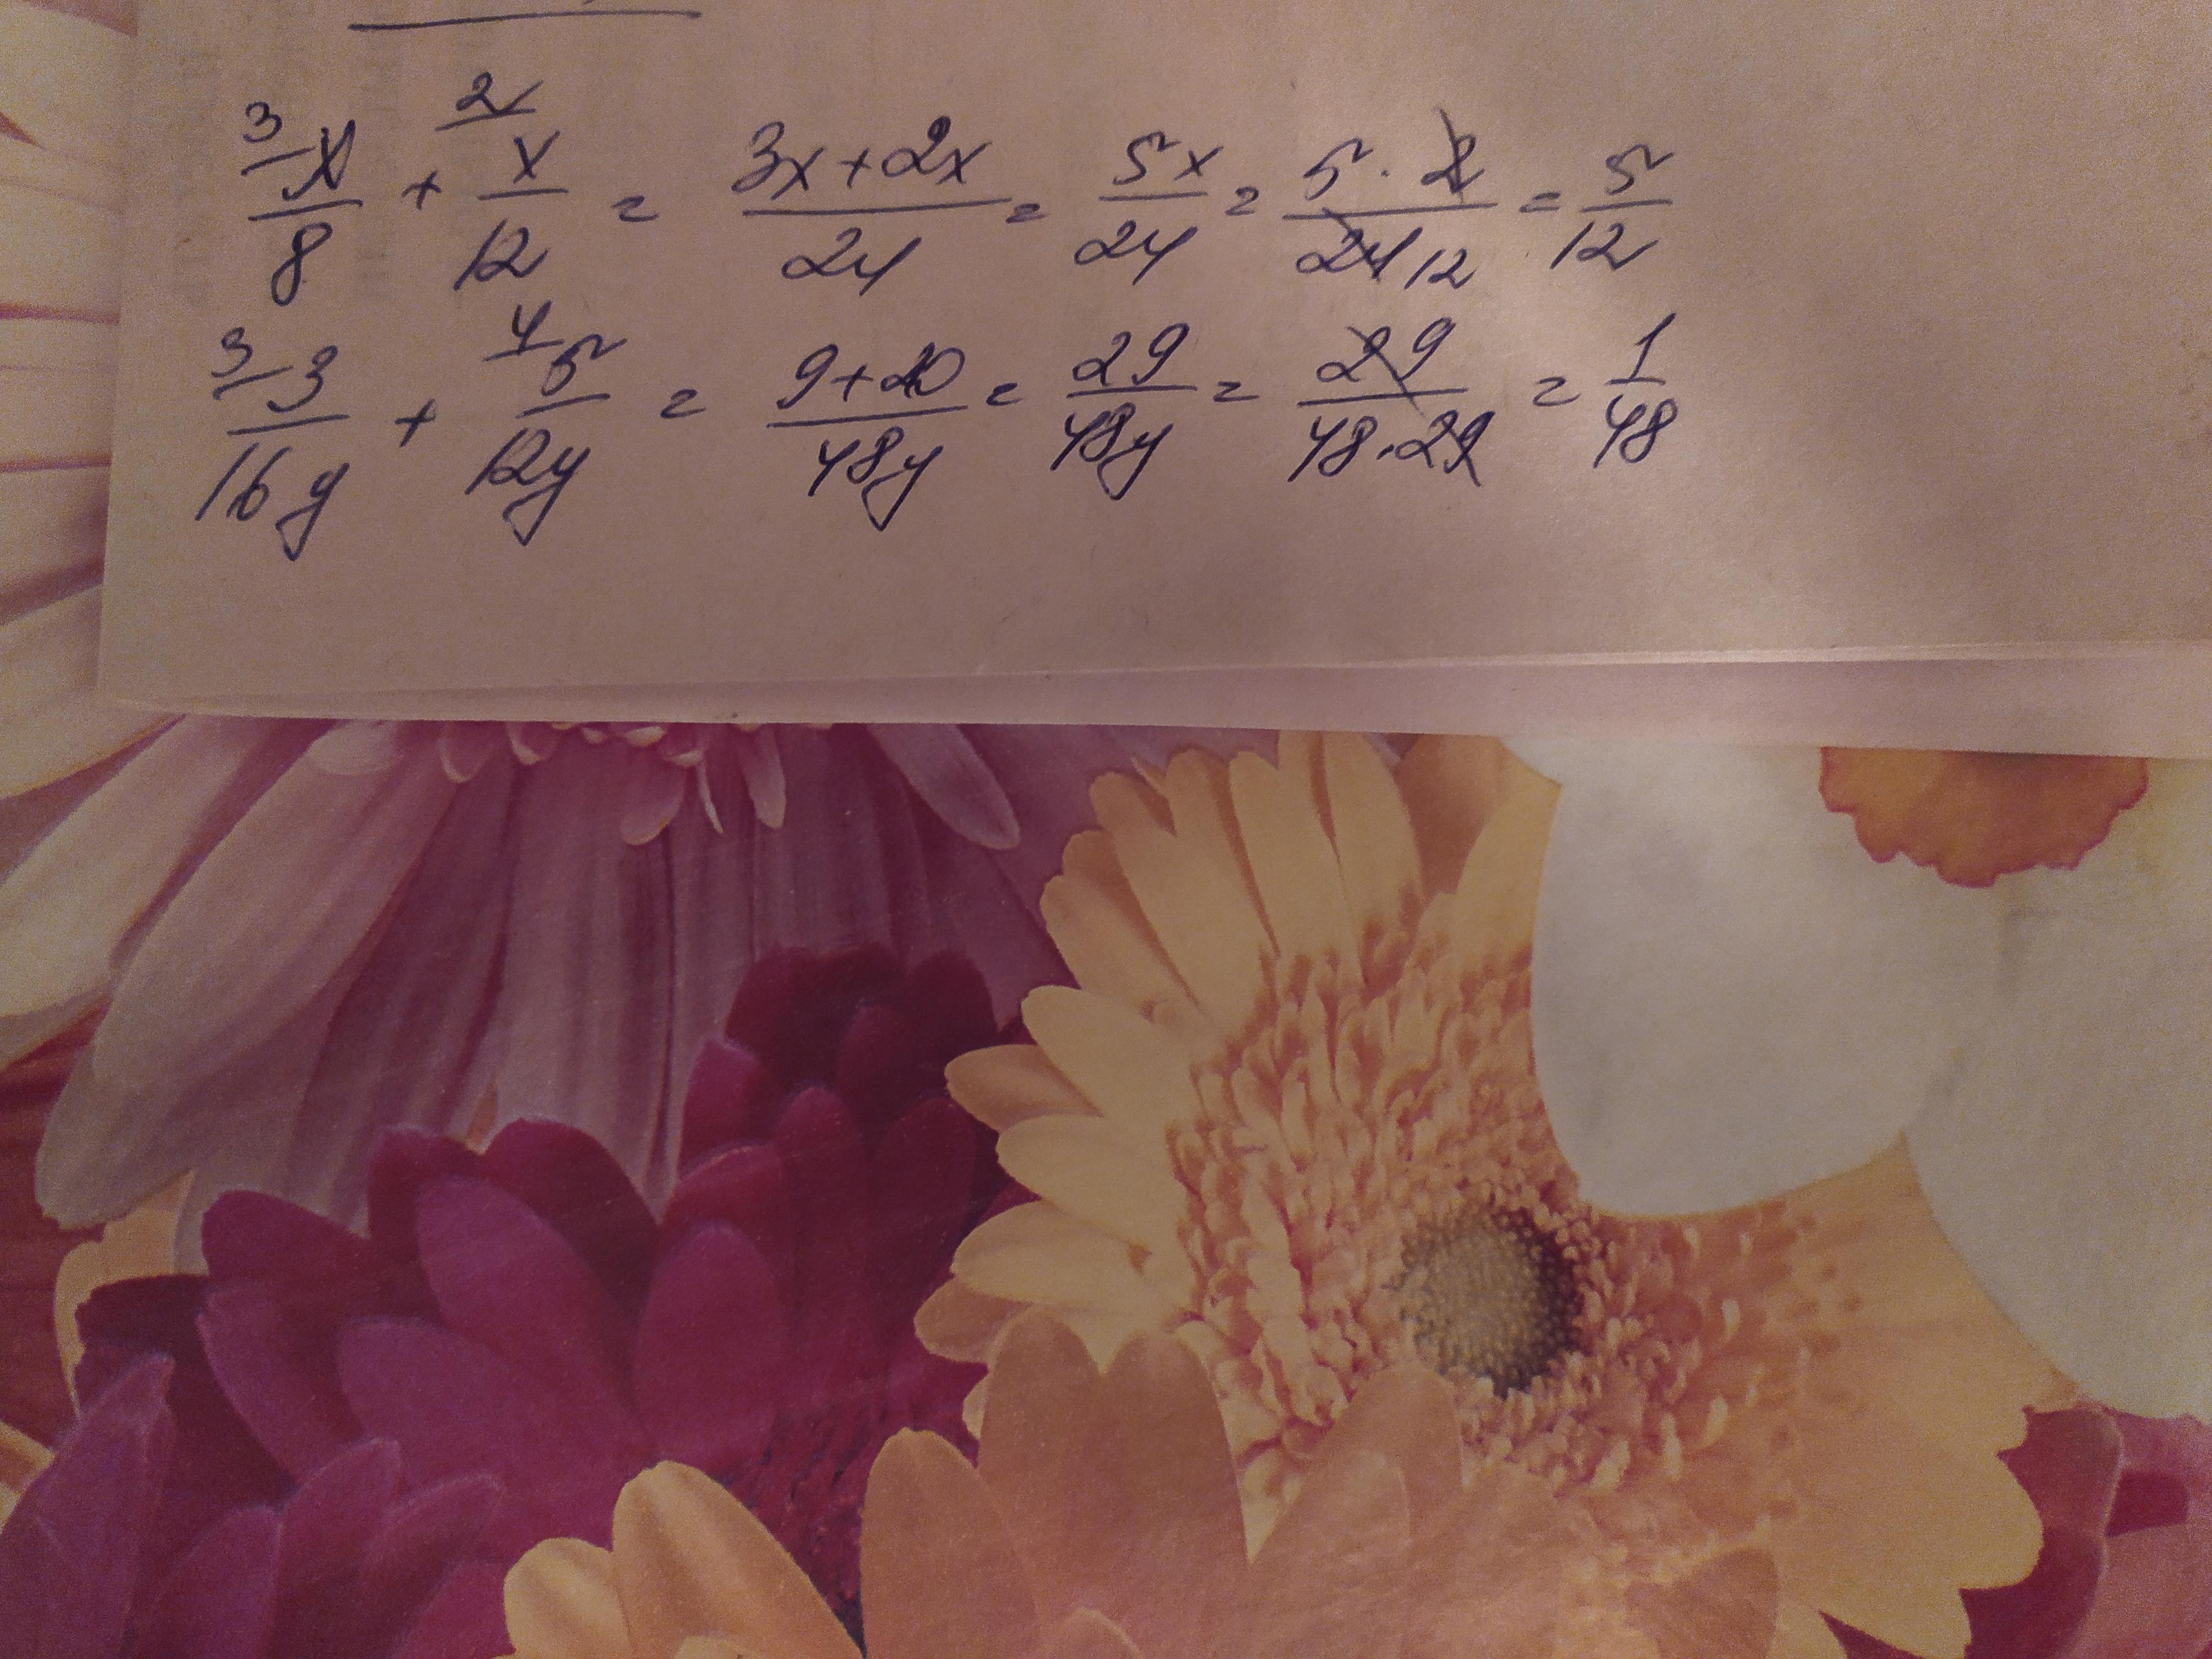 3/x/8 + 2/x/12 = (3x+2x)/24 = 5x/24 = 5·2/24 12 = 5/12
3/3/16y + 4/5/12y = (9+20)/48y = 29/48y = 29/48·29 = 1/48